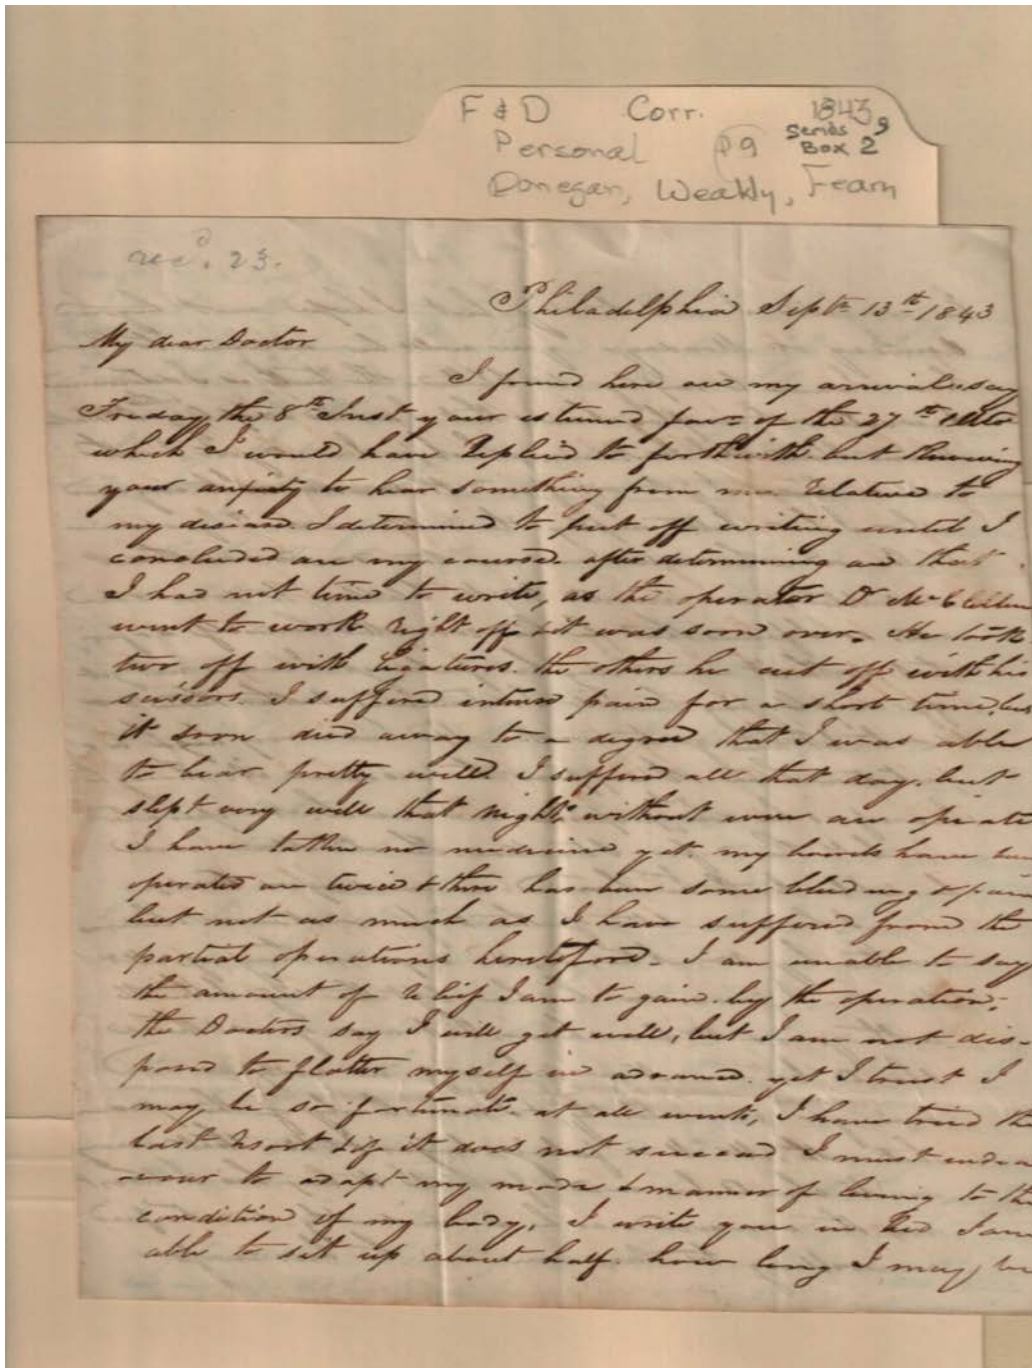 F & D Corr. 1843
Series 9
Personal P9 Box 2
Donegan, Weakly, Fearn
recd. 23.
Philadelphia Sept 13th 1843
My dear Doctor
I found here on my arrival say
Friday the 8th Inst your esteemed favr of the 27th ulto
which I would have Replied to forthwith but knowing
your anxiety to hear something from me relative to
my disease I determined to put off writing until I
concluded on my course. after determining on that
I had not time to write, as the operator Dr McClellan
went to work right off & it was soon over. He took
two off with Ligatures. the others he cut off with his
scissors. I suffered intense pain for a short time, but
it soon died away to a degree that I was able
to bear pretty well. I suffered all that day. but
slept very well that night. without even an opiate
I have taken no medicine yet. my bowels have been
operated on twice & there has been some bleeding & pain
but not as much as I have suffered from the
partial operations heretofore. I am unable to say
the amount of relief I am to gain by the operation.
the Doctors say I will get well, but I am not dis-
posed to flatter myself in advance. yet I trust I
may be so fortunate. at all events, I have tried the
last resort & if it does not succeed I must endea
vour to adapt my mode & manner of living to the
condition of my body. I write you in Bed I am
able to sit up about half. how long I may be